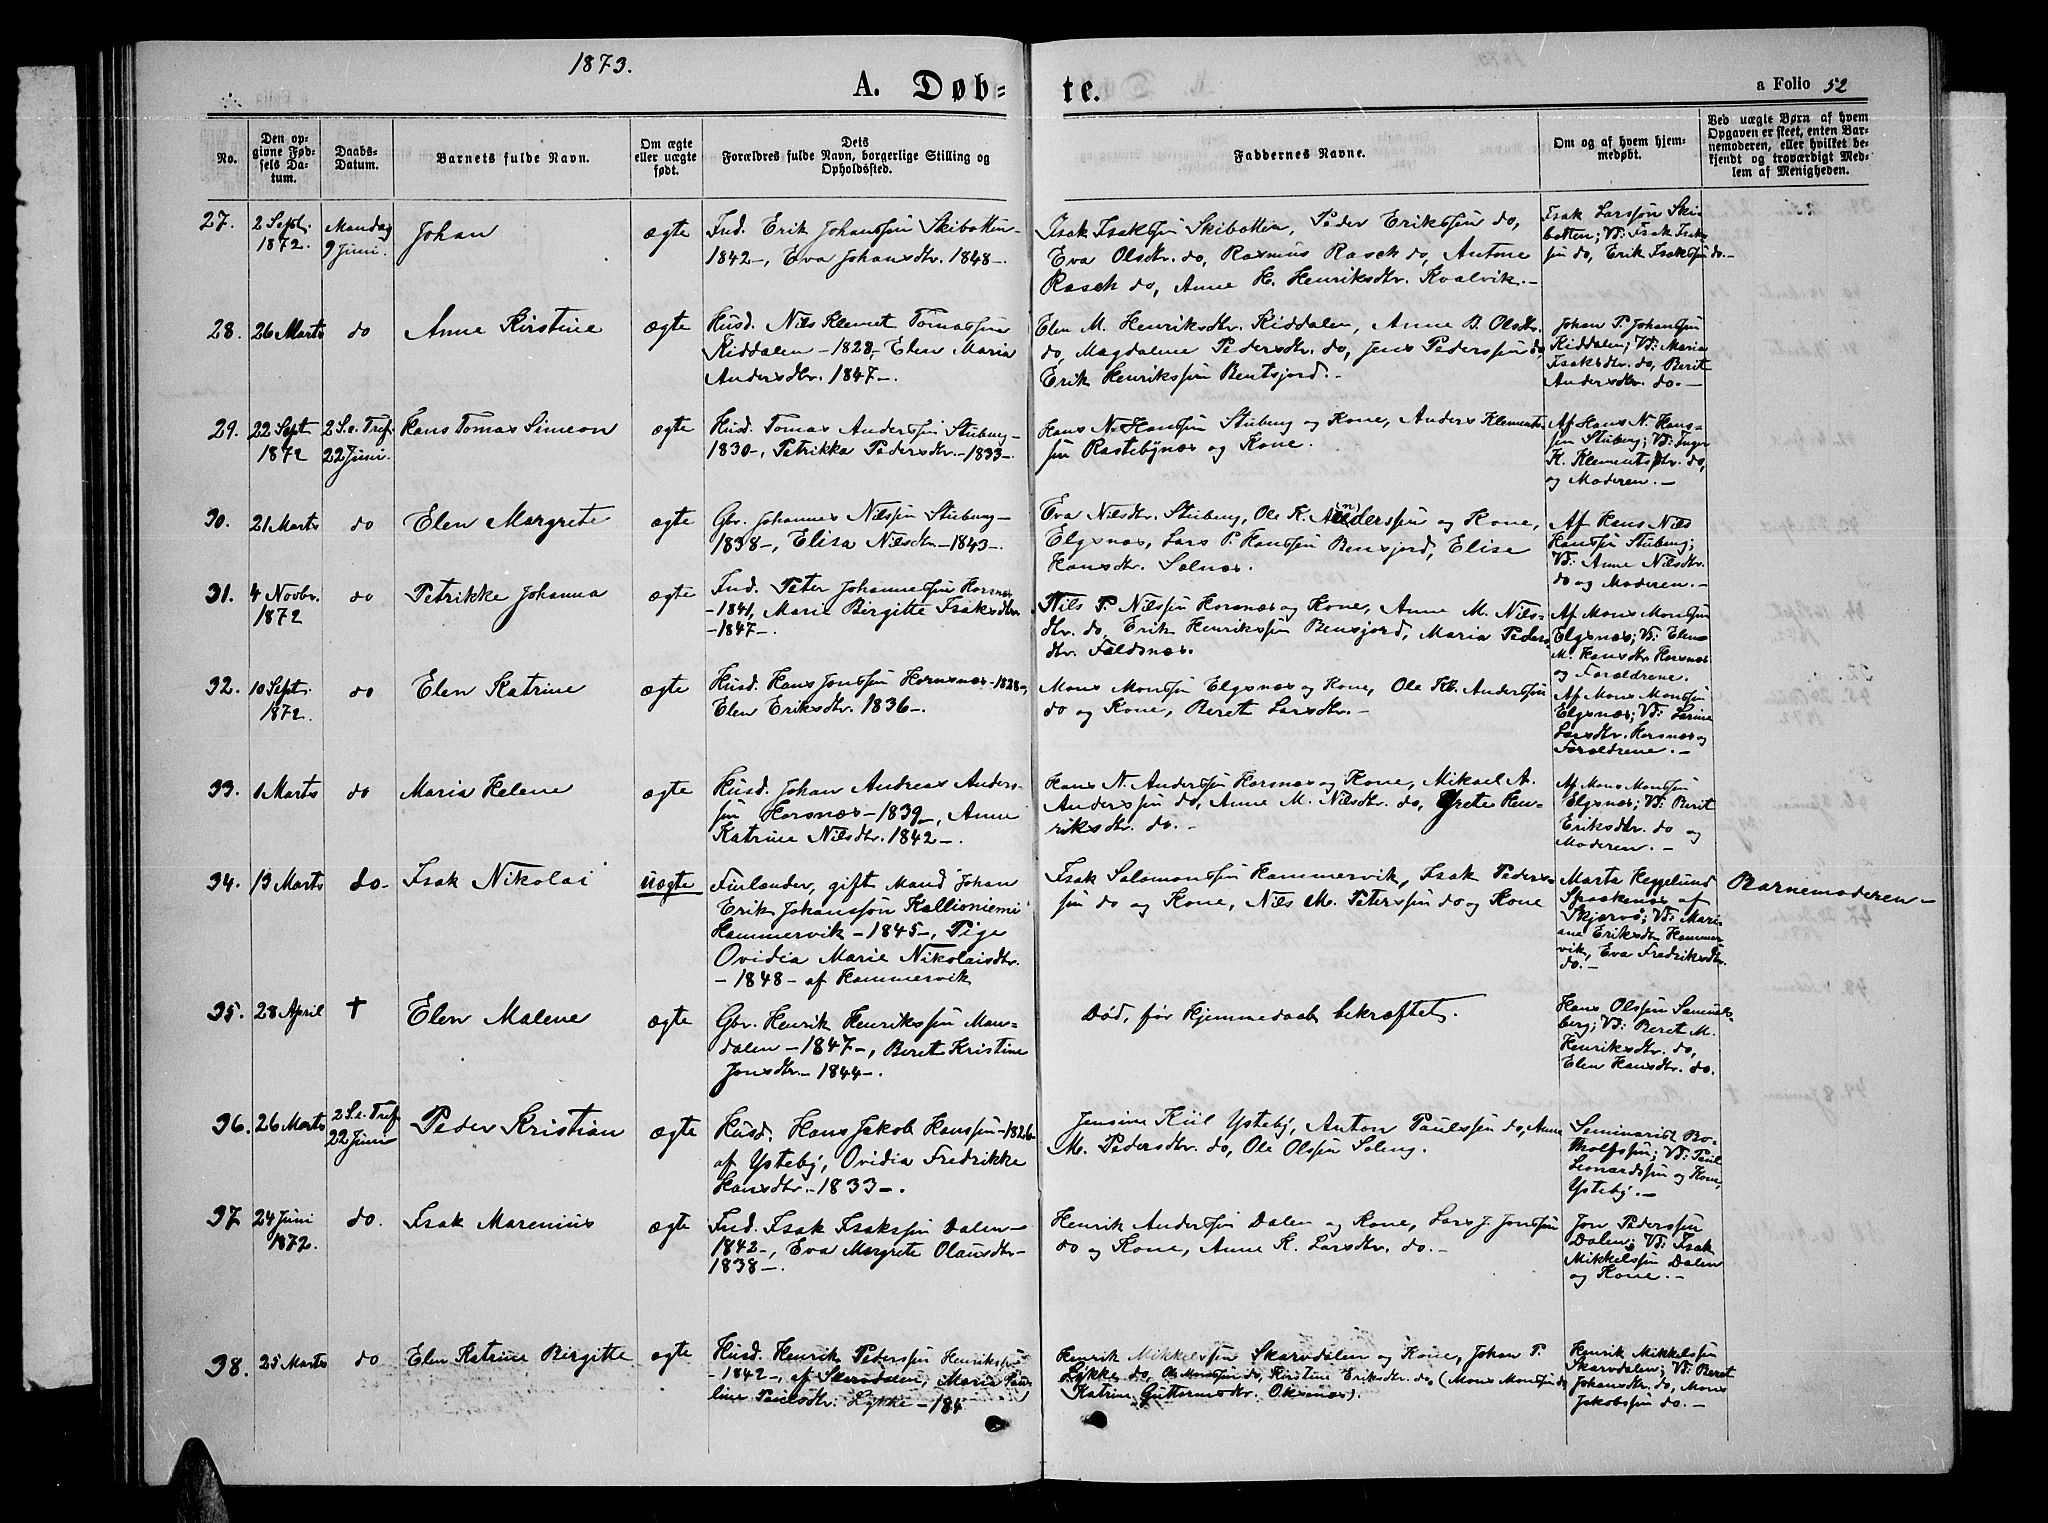 1873.
A. Døb-
te.
a Folio 52
No.
Den op-
givne Fød-
sels Da-
tum.
Daabs-
Datum.
Barnets fulde Navn.
Om ægte
eller uægte
født.
Dets
Forældres fulde Navn, borgerlige Stilling og
Opholdssted.
Faddernes Navne.
Om og af hvem hjem-
medøbt.
Ved uægte Børn af hvem
Opgaven er skeet, enten Bar-
nemoderen, eller hvilket be-
kjendt og troværdigt Med-
lem af Menigheden.
27.
2 Sept.
1872.
Mandag
9 Juni.
Johan
ægte
Ind. Erik Johanssøn Skibotten-
1842-, Eva Johansdtr. 1848-
Isak Isakssøn Skibotten, Peder Erikssøn do,
Eva Olsdtr. do, Rasmus Rasch do, Antone
Rasch do, Anne H. Henriksdtr. Kvalvik.-
Isak Larssøn Ski-
botten; Vd: Isak Isaks-
søn do, Erik Isakssøn do.-
28.
26 Marts
do
Anne Kirstine
ægte
Husd. Nils Klemet Tomassøn
Kiddalen-1828-, Elen Maria
Andersdtr. 1847-.
Elen M. Henriksdtr. Kiddalen, Anne B. Olsdtr.
do, Magdalene Pedersdtr. do, Jens Pederssøn do,
Erik Henrikssøn Bentsjord.-
Johan P. Johanssøn
Kiddalen; Vd: Maria
Isaksdtr. do, Berit
Andersdtr. do.-
29.
22 Sept
1872
2 S. e. Tref.
22 Juni.
Hans Tomas Simeon
ægte
Husd. Tomas Anderssøn Stubeng-
1830-, Petrikka Pedersdtr.-1833-
Hans N. Hanssøn Stubeng og Kone, Anders Klemets-
søn Rastebynæs og Kone.
Af Hans N. Hans-
søn Stubeng; Vd: Inger
K. Klementsdtr. do,
og Moderen.-
30.
21 Marts
do
Elen Margrete
ægte
Gbr. Johannes Nilssøn Stubeng-
1838-, Elisa Nilsdtr.-1843-.
Eva Nilsdtr. Stubeng, Ole K. Anderssøn og Kone,
Elgsnæs, Lars P. Hanssøn Bensjord, Elise
Hansdtr. Solnæs.
Af Hans Nils
Hanssøn Stubeng;
Vd: Anne Nilsdtr.
do og Moderen.-
31.
4 Novbr.
1872
do
Petrikke Johanna
ægte
Ind. Peter Johannessøn Horsnæs
-1841, Marie Birgitte Isaksdtr.
-1847-.
Nils P. Nilssøn Horsnæs og Kone, Anne M. Nils-
dtr. do, Erik Henrikssøn Bensjord, Maria Peders-
dtr. Foldsnæs.
Af Mons Monssøn
Elgsnæs; Vd: Elen
M. Hansdtr Horsnæs
og Forældrene.
32.
10 Sept.
1872.
do
Elen Katrine
ægte
Husd. Hans Jonssøn Hornsnæs-1828-,
Elen Eriksdtr. 1836-.
Mons Monssøn Elgsnæs og Kone, Ole Kl. Anderssøn
do og Kone, Beret Larsdtr.-
Af Mons Monssøn
Elgsnæs; Vd: Larine
Larsdtr. Horsnæs og
Forældrene.-
33.
1 Marts
do
Maria Helene
ægte
Husd. Johan Andreas Anders-
søn Horsnæs-1839-, Anne
Katrine Nilsdtr. 1842-.
Hans N. Anderssøn Horsnæs og Kone, Mikael A.
Anderssøn do, Anne M. Nilsdtr. do, Grete Hen-
riksdtr. do.-
Af Mons Monssøn
Elgsnæs; Vd: Berit
Eriksdtr. do og
Moderen.-
34.
13 Marts
do.
Isak Nikolai
uægte
Finlænder, gift Mand Johan
Erik Johanssøn Kallioniemi
Hammervik-1845-, Pige
Ovidia Marie Nikolaisdtr.
-1848- af Hammervik
Isak Salomonssøn Hammervik, Isak Peders-
søn do og Kone, Nils M. Peterssøn do og Kone
Marta Heggelund
Spaakenæs af
Skjervø; Vd: Mari-
ane Eriksdtr Hammer-
vik, Eva Fredriksdtr.
do.-
Barnemoderen-
35.
28 April
†
Elen Malene
ægte
Gbr. Henrik Henrikssøn Man-
dalen-1847-, Beret Kristine
Jonsdtr.-1844-.
Død, før Hjemmedaab bekræftet.
Hans Olssøn Samuels-
berg; Vd: Beret M.
Henriksdtr. do,
Elen Hansdtr. do.
36.
26 Marts
2 S. e. Tref.
22 Juni
Peder Kristian
ægte
Husd. Hans Jakob Hanssøn-1826
af Ysteby, Ovidia Fredrikke
Hansdtr.-1833-.
Jensine Kiil Ysteby, Anton Paulssøn do, Anne
M. Pedersdtr. do, Ole Olssøn Soleng.
Seminarist Bo-
tholfssøn; Vd: Paul
Leonardssøn og Kone,
Ysteby.-
37
24 Juni
1872.
do.
Isak Marenius
ægte
Ind. Isak Isakssøn Dalen-
1842-, Eva Margrete Olausdtr-
1838-.
Henrik Anderssøn Dalen og Kone, Lars J. Jonssøn
do og Kone, Anne K. Larsdtr. do.-
Jon Pederssøn
Dalen; Vd: Isak
Mikkelssøn Dalen
og Kone.-
38.
25 Marts
do
Elen Katrine Birgitte
ægte
Husd. Henrik Pederssøn Henrikssøn
-1842-, af Skarvdalen, Maria Pau-
line Paulsdtr. Lykke-184
Henrik Mikkelssøn Skarvdalen og Kone, Johan P.
Lykke do, Ole Monssøn do, Kirstine Eriksdtr. do, (Mons Monssøn do
Katrine Guttormsdtr. Oksnæs).
Henrik Mikkelssøn
Skarvdalen; Vd: Beret
Johansdtr. do, Mons
Jakobssøn do.-